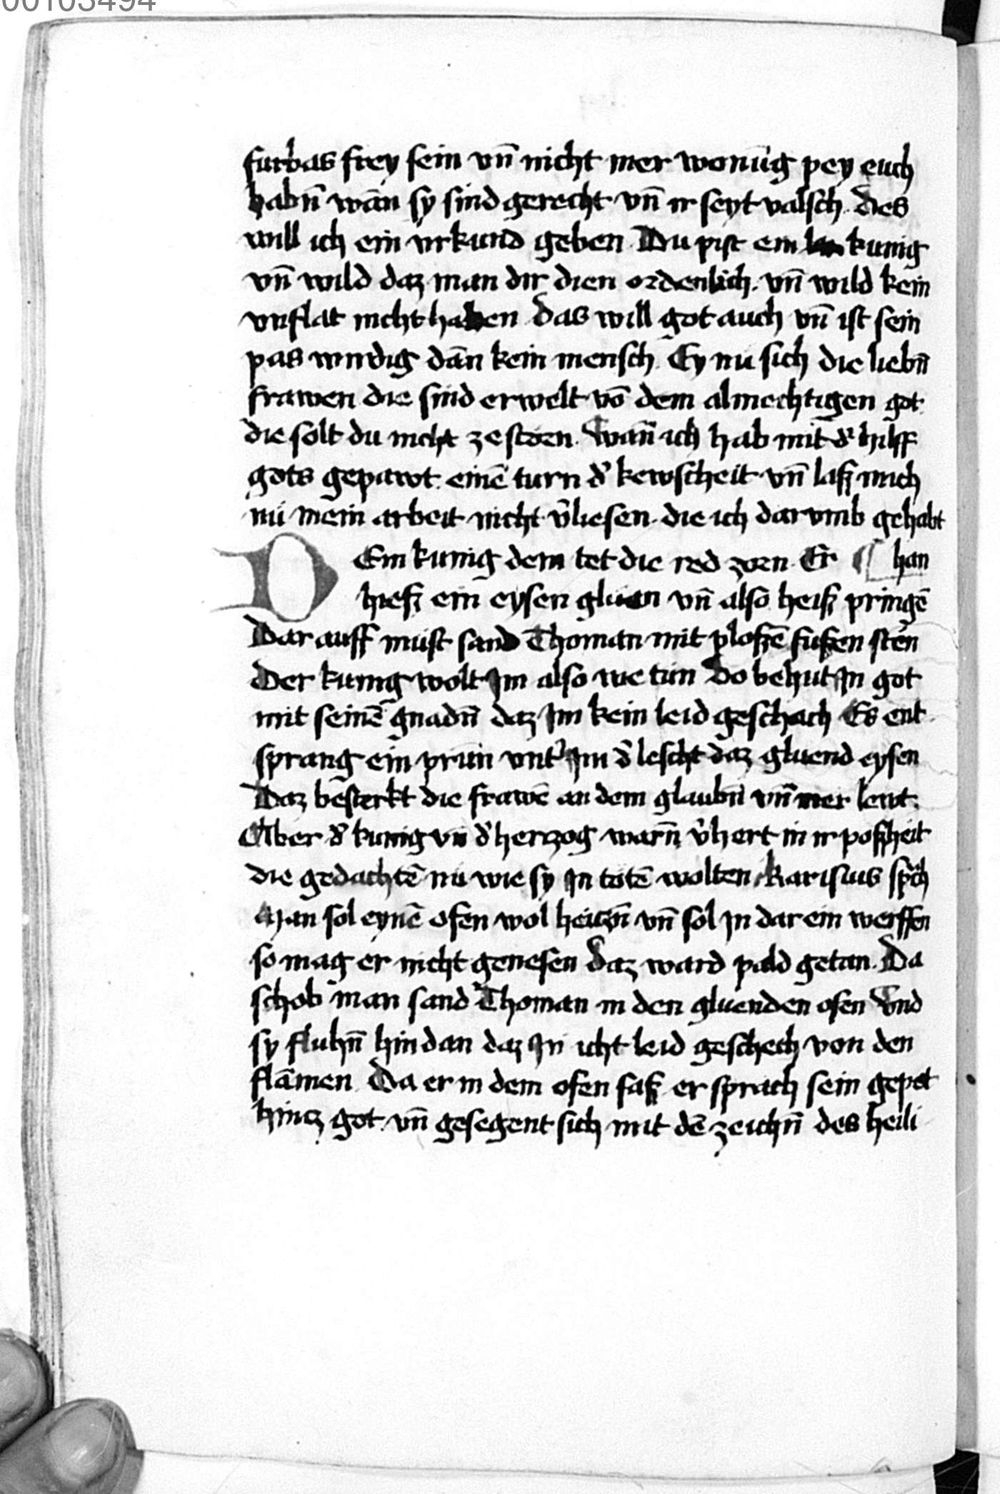 00103494
furbas frey sein vn̄ nicht mer wonūg pey euch
habn̄ wān sy sind gerecht vn̄ ir seyt valsch dies
will ich ein vrkund geben Du pist ein kunig
vn̄ wild daz man dir dien ordenlich vn̄ wild kein
vnflat nicht haben das will got auch vn̄ ist sein
pas wirdig dān kein mensch Ey nu sich die liebn̄
frawen die sind erwelt vō dem almechtigen got
die solt du nicht zestören wān ich hab mit d' hilff
gots gepawt einē turn d' kewscheit vn̄ laß mich
nu mein arbeit nicht v'liesen die ich dar vmb gehabt
Dem kunig dem tet die red zorn Er han
hieß ein eysen gluen vn̄ also heiß pringē
Dar auff must sand Thoman mit ploßē fußen sten
Der kunig wolt Im also we tun Do behut In got
mit seinē gnadn̄ daz Im kein leid geschach Es ent
sprang ein prun vnt' Im d' lescht daz gluend eysen
Daz besterkt die frawē an dem glaubn̄ vn̄ mer lewt
Aber d' kunig vn̄ d' herzog warn̄ v'hert in ir poßheit
die gedachtē nu wie sy In tötē wolten Karisius sp̄ch
Man sol eynē ofen wol heiczn̄ vn̄ sol In dar ein werffen
so mag er nicht genesen daz ward pald getan Da
schob man sand Thoman in den gluenden ofen Vnd
sy fluhn̄ hin dan daz In icht leid geschech von den
flāmen Da er in dem ofen saß er sprach sein gepet
hincz got vn̄ gesegent sich mit dē zeichn̄ des heili